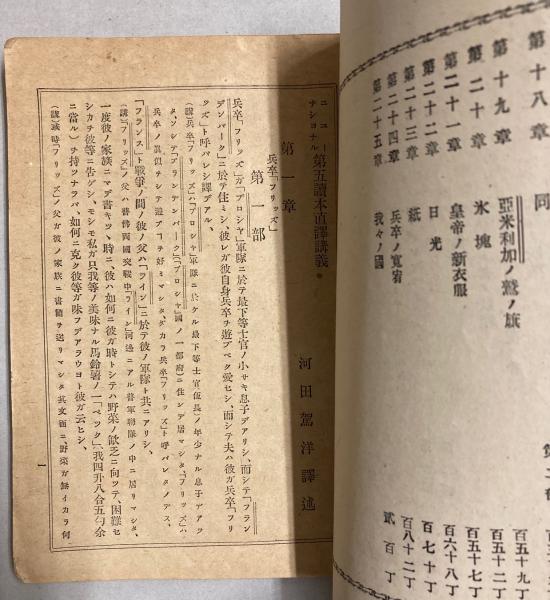 第十八章
同
第十九章
亞米利加ノ鷲ノ旗
第二十章
氷塊
第二十一章
皇帝ノ新衣服
第二十二章
日光
第二十三章
紙
第二十四章
兵卒ノ寬宥
第二十五章
我々ノ國
百五十九丁
百五十二丁
百五十七丁
百六十八丁
百七十丁
百八十二丁
貳百丁
ニューナショナル第五讀本直譯講義
河田鴛洋譯述
第一章
兵卒「フリッズ」
第一部
兵卒「フリッズ」ガ「プロシャ」軍隊ニ於テ最下等士官ノ小サキ息子デアリシ、而シテ「フラン
デンバーク」ニ於テ住ミシ、彼ガ彼自身兵卒ヲ遊ブベク愛セシ、而シテ夫ハ彼ガ兵卒「フリ
ッズ」ト呼バレシ譯デアル、
(講)兵卒「フリッズ」ハ「プロシャ」軍隊ニ於ケル最下等士官(伍長)ノ年少ナル息子デアッ
タ、ソシテ「ブランデンバーク」(「プロシャ」國ノ一都府)ニ住シデ居マシタ、「フリッズ」ハ
兵卒ノ眞似シテ遊ブコヲ好ミマシタ、ダカラ兵卒「フリッズ」ト呼バレタノデス、
「フランス」ト戰爭ノ間ノ彼ノ父ハ「ライン」ニ於テ彼ノ軍隊ト共ニアリシ、
(講)「フリッズ」ノ父ハ普佛兩國交戰中「ライン」河邊ニアル普軍聯隊ノ中ニ居リマシタ、
一度彼ノ家族ニマデ書キツヽ時ニ、彼ハ如何ニ彼ガ時トシテハ野菜ノ欽乏ニ向ッテ、困難セ
シカヲ彼等ニ告ゲシ、モシモ私ガ只我等ノ美味ナル馬鈴薯ノ一「ペック」(我四升八合五勺余
ニ當ル)ヲ持ツナラバ、如何ニ克ク彼等ガ味フデアラウヨト彼ガ云ヒシ、
(講)或時「フリッズ」ノ父ガ彼ノ家族ニ書簡ヲ送リマシタ其文面ニ、野菜ガ無イカラ何
一